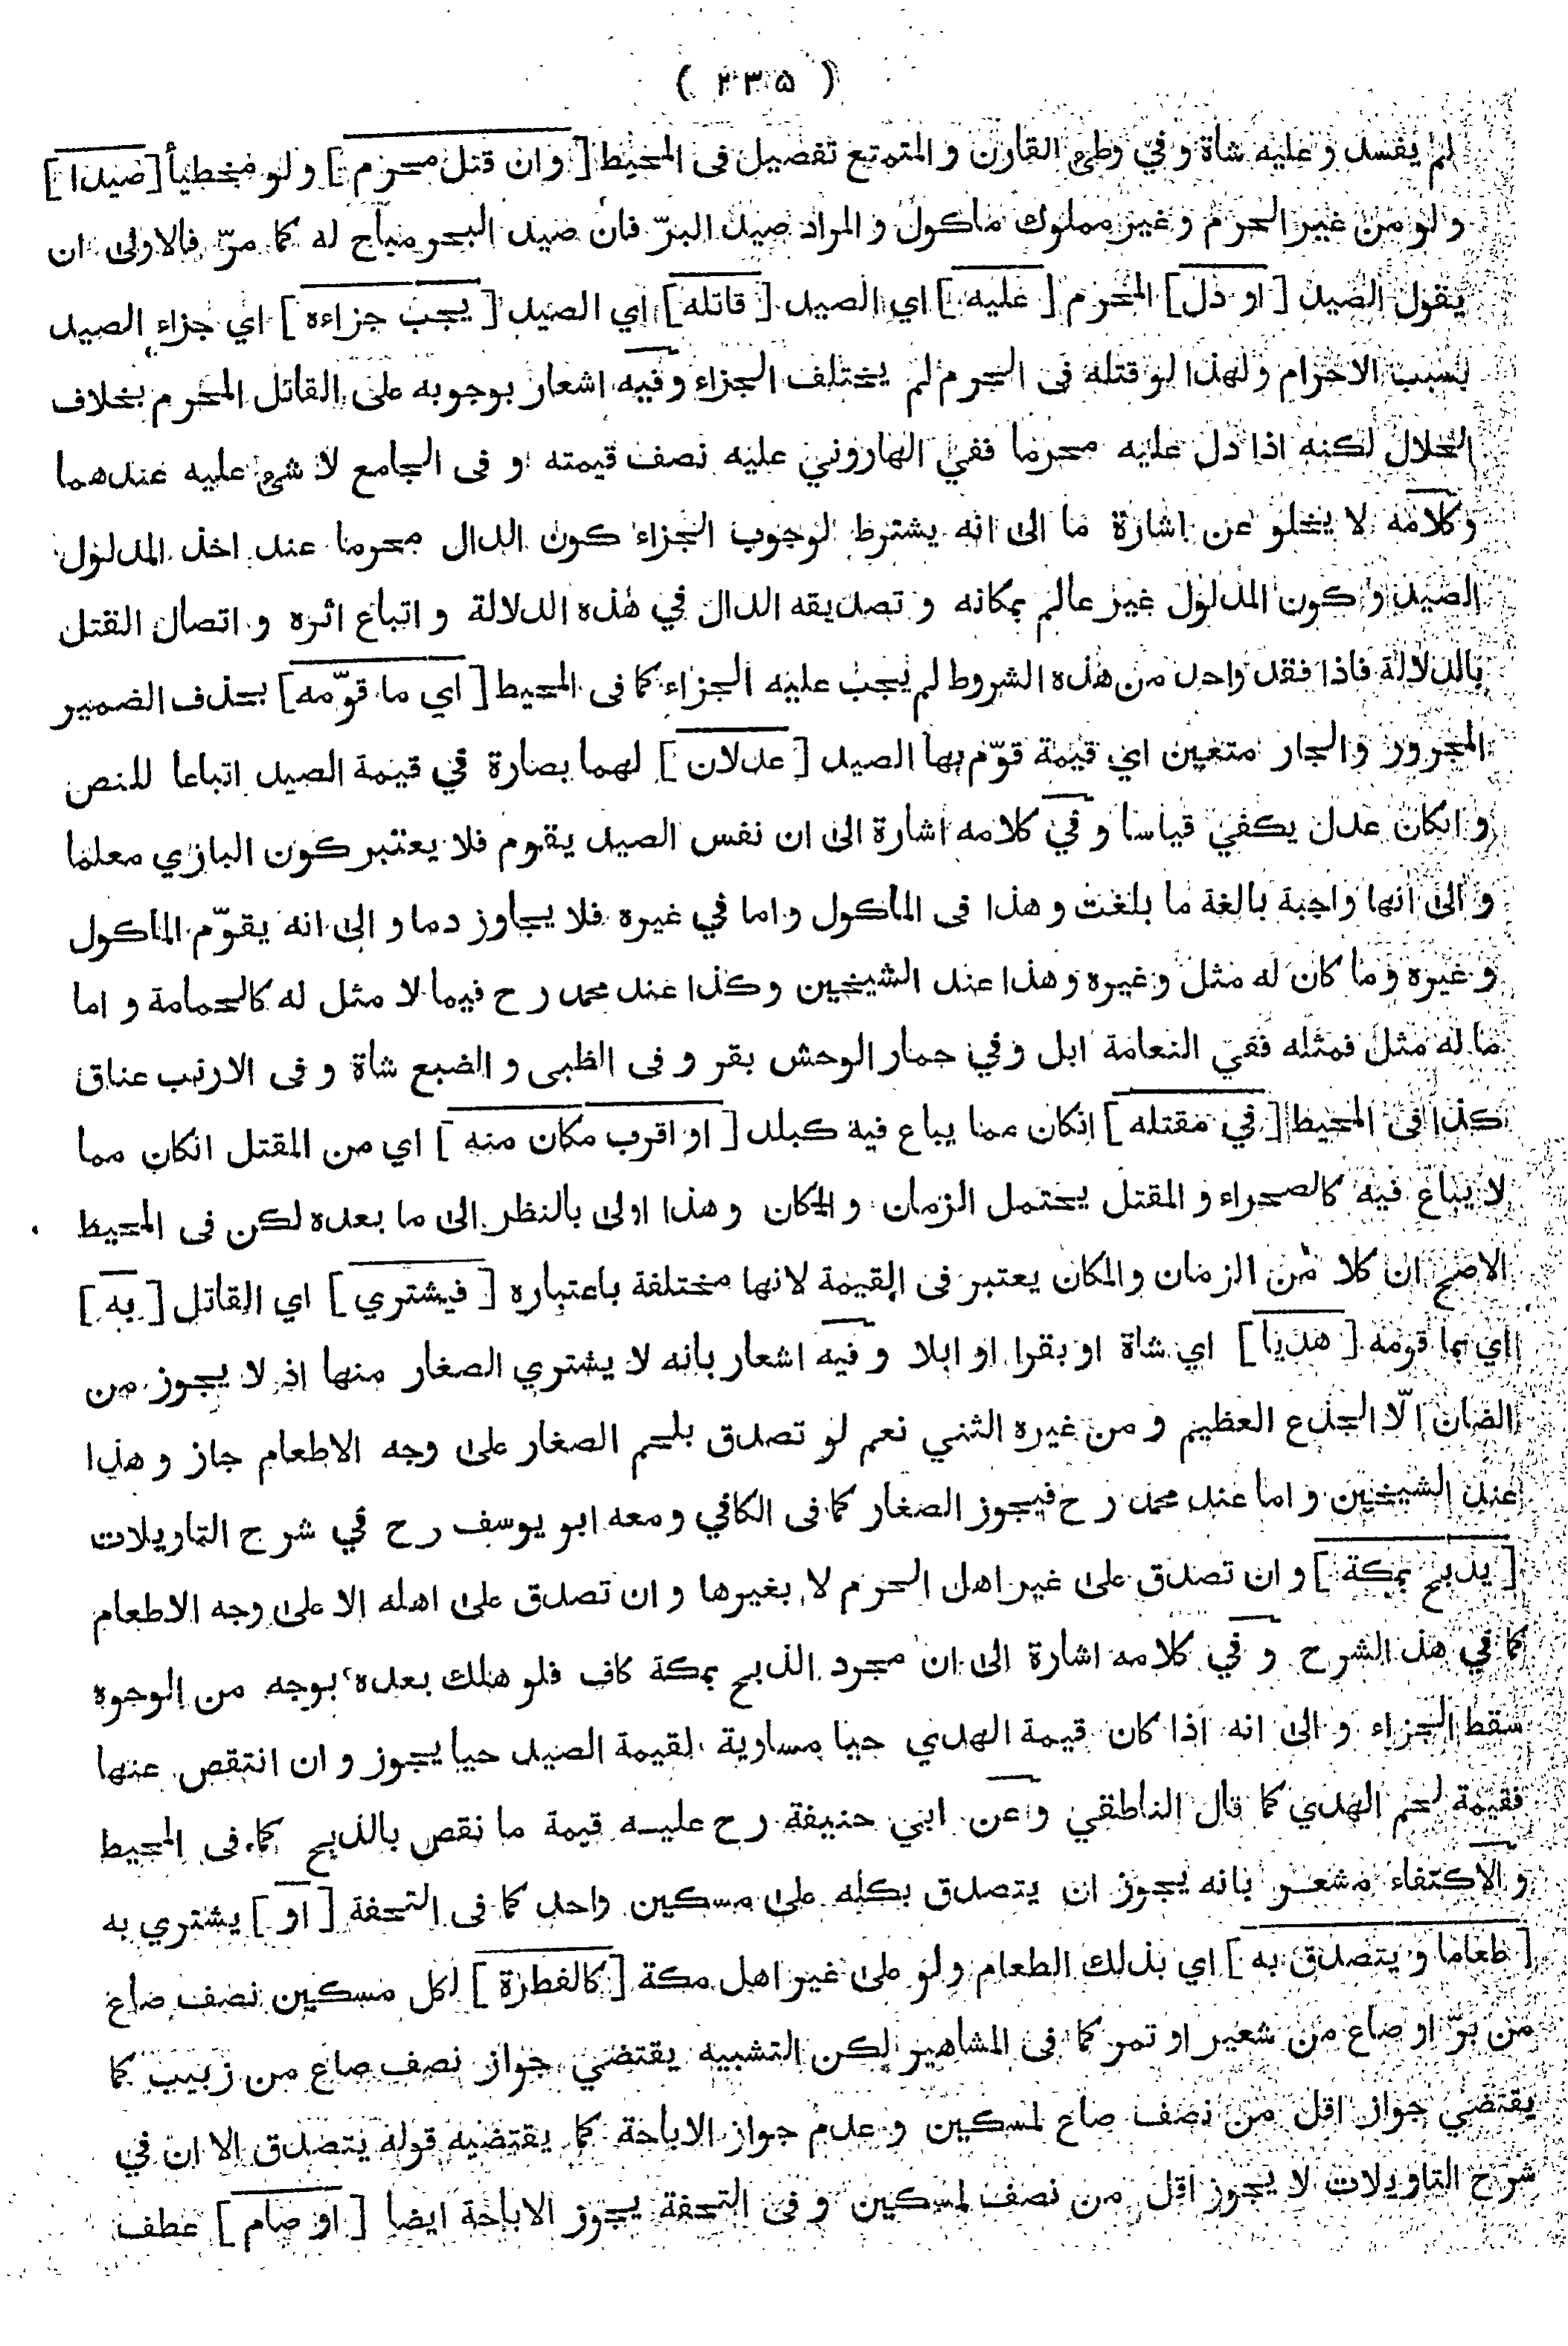 ( ٢٣٥ )
لم يفسد و عليه شاة و في وطئ القارن و المتمتع تفصيل فى المحيط [ و ان قتل محرم ] و لو مخطيأ [ صيدا ]
و لو من غير الحرم و غير مملوك ماكول و المراد صيد البرّ فان صيد البحر مباح له كما مرّ فالاولى ان
يقول الصيد [ او دل ] المحرم [ عليه ] اي الصيد [ قاتله ] اي الصيد [ يجب جزاءه ] اي جزاء الصيد
بسبب الاحرام و لهذا لو قتله فى الحرم لم يختلف الجزاء و فيه اشعار بوجوبه على القاتل المحرم بخلاف
الحلال لكنه اذا دل عليه محرما ففي الهاروني عليه نصف قيمته و فى الجامع لا شئ عليه عندهما
و كلامه لا يخلو عن اشارة ما الى انه يشترط لوجوب الجزاء كون الدال محرما عند اخذ المدلول
الصيد و كون المدلول غير عالم بمكانه و تصديقه الدال في هذه الدلالة و اتباع اثره و اتصال القتل
بالدلالة فاذا فقد واحد من هذه الشروط لم يجب عليه الجزاء كما فى المحيط [ اي ما قوّمه ] بحذف الضمير
المجرور و الجار متعين اي قيمة قوّم بها الصيد [ عدلان ] لهما بصارة في قيمة الصيد اتباعا للنص
و انكان عدل يكفي قياسا و في كلامه اشارة الى ان نفس الصيد يقوم فلا يعتبر كون البازي معلما
و الى انها واجبة بالغة ما بلغت و هذا فى المأكول و اما في غيره فلا يجاوز دما و الى انه يقوّم المأكول
و غيره و ما كان له مثل و غيره و هذا عند الشيخين و كذا عند محمد رح فيما لا مثل له كالحمامة و اما
ما له مثل فمثله ففي النعامة ابل و في حمار الوحش بقر و فى الظبى و الضبع شاة و فى الارنب عناق
كذا فى المحيط [ في مقتله ] انكان مما يباع فيه كبلد [ او اقرب مكان منه ] اي من المقتل انكان مما
لا يباع فيه كالصحراء و المقتل يحتمل الزمان و المكان و هذا اولى بالنظر الى ما بعده لكن فى المحيط
الاصح ان كلا من الزمان والمكان يعتبر فى القيمة لانها مختلفة باعتباره [ فيشتري ] اي القاتل [ به ]
اي بما قومه [ هديا ] اي شاة او بقرا او ابلا و فيه اشعار بانه لا يشتري الصغار منها اذ لا يجوز من
الضان الّا الجذع العظيم و من غيره الثني نعم لو تصدق بلحم الصغار على وجه الاطعام جاز و هذا
عند الشيخين و اما عند محمد رح فيجوز الصغار كما فى الكافي و معه ابو يوسف رح في شرح التاويلات
[ يذبح بمكة ] و ان تصدق على غير اهل الحرم لا بغيرها و ان تصدق على اهله الا على وجه الاطعام
كما في هذ الشرح و في كلامه اشارة الى ان مجرد الذبح بمكة كاف فلو هلك بعده بوجه من الوجوه
سقط الجزاء و الى انه اذا كان قيمة الهدي حيا مساوية لقيمة الصيد حيا يجوز و ان انتقص عنها
فقيمة لحم الهدي كما قال الناطقي و عن ابي حنيفة رح عليه قيمة ما نقص بالذبح كما فى المحيط
و الاكتفاء مشعر بانه يجوز ان يتصدق بكله على مسكين واحد كما فى التحفة [ او ] يشتري به
[ طعاما و يتصدق به ] اي بذلك الطعام و لو على غير اهل مكة [ كالفطرة ] لكل مسكين نصف صاع
من برّ او صاع من شعير او تمر كما فى المشاهير لكن التشبيه يقتضي جواز نصف صاع من زبيب كما
يقتضي جواز اقل من نصف صاع لمسكين و عدم جواز الاباحة كما يقتضيه قوله يتصدق الا ان في
شرح التاويلات لا يجوز اقل من نصف لمسكين و فى التحفة يجوز الاباحة ايضا [ او صام ] عطف